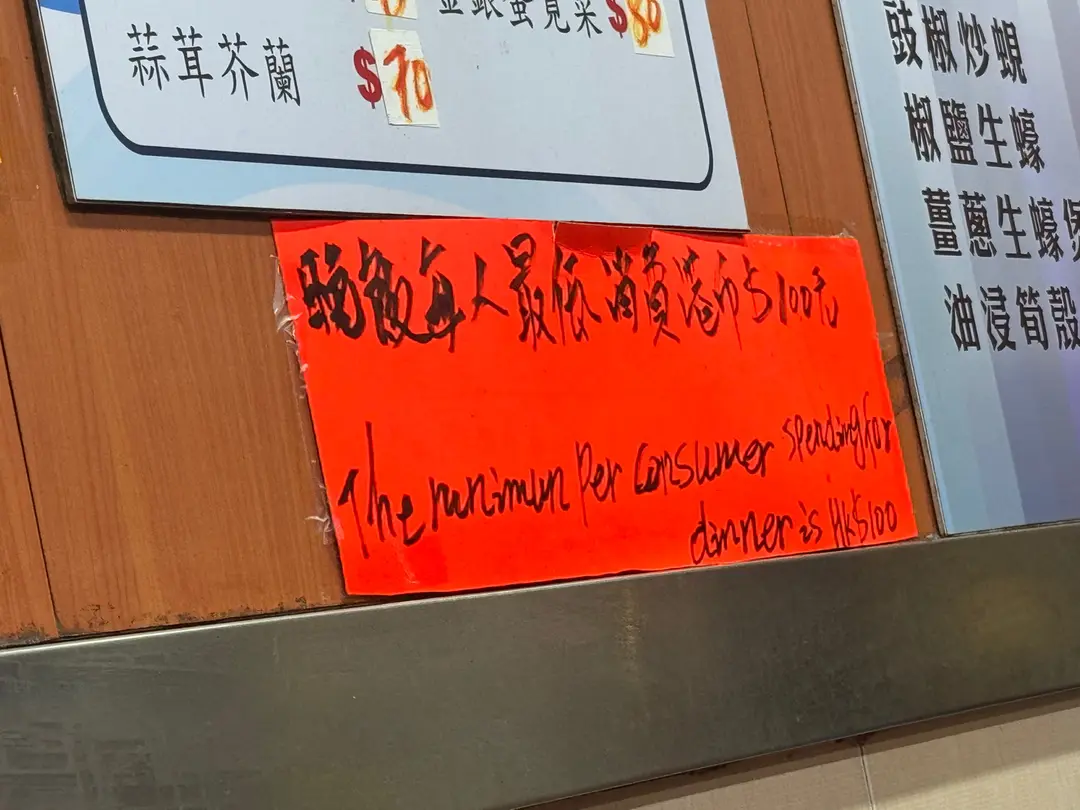 金銀蛋莧菜 $80
蒜茸芥蘭 $70
豉椒炒蜆
椒鹽生蠔
薑蔥生蠔煲
油浸筍殼
晚飯每人最低消費港币$100元
The minimun per consumer spending for
dinner is HK$100